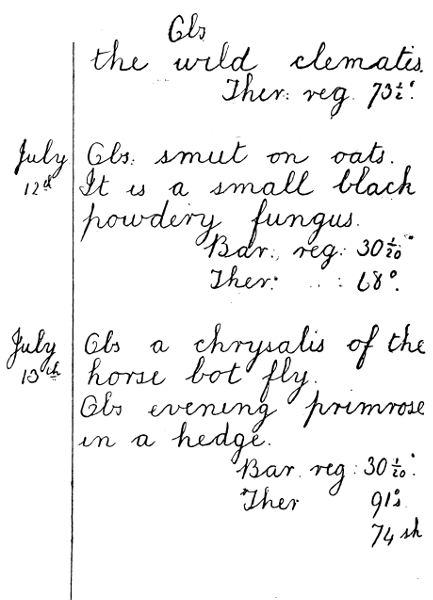 Obs
the wild clematis.
Ther: reg. 73½°.
July 12th Obs: smut on oats.
It is a small black
powdery fungus.
Bar: reg: 30 1/20"
Ther: .. : 68°.
July 13th Obs a chrysalis of the
horse bot fly.
Obs evening primrose
in a hedge.
Bar. reg: 30 1/20".
Ther 91°s
74 sh